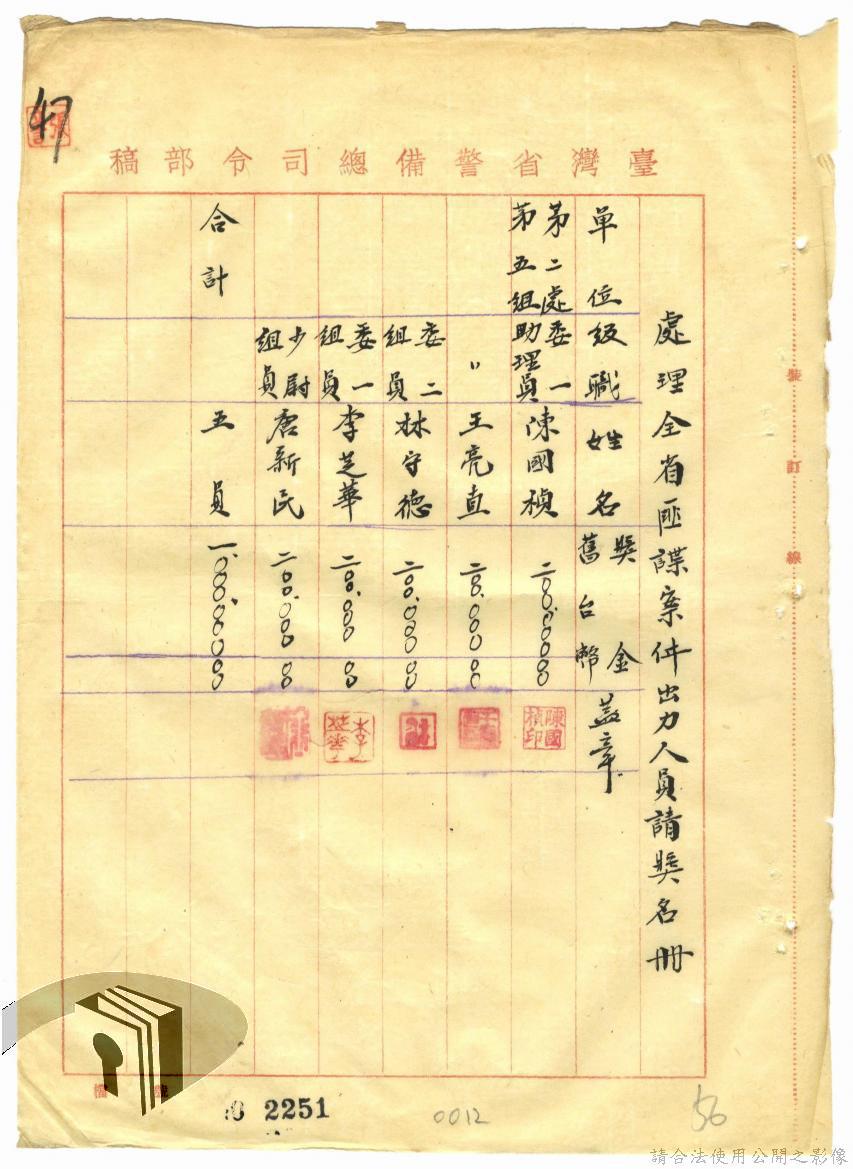 47
臺灣省警備總司令部稿
處理全省匪諜案件出力人員請獎名冊
單位級職姓名獎金舊台幣蓋章
第二處第五組委一助理員陳國楨二〇〇.〇〇〇〇〇
陳國楨印
〃王亮直二〇〇.〇〇〇〇〇
委二組員林守德二〇〇.〇〇〇〇〇
委一組員李芝華二〇〇.〇〇〇〇〇
李芝華
少尉組員唐新民二〇〇.〇〇〇〇〇
合計五員一.〇〇〇.〇〇〇〇〇
裝訂線
檔號
2251
0012
56
請合法使用公開之影像